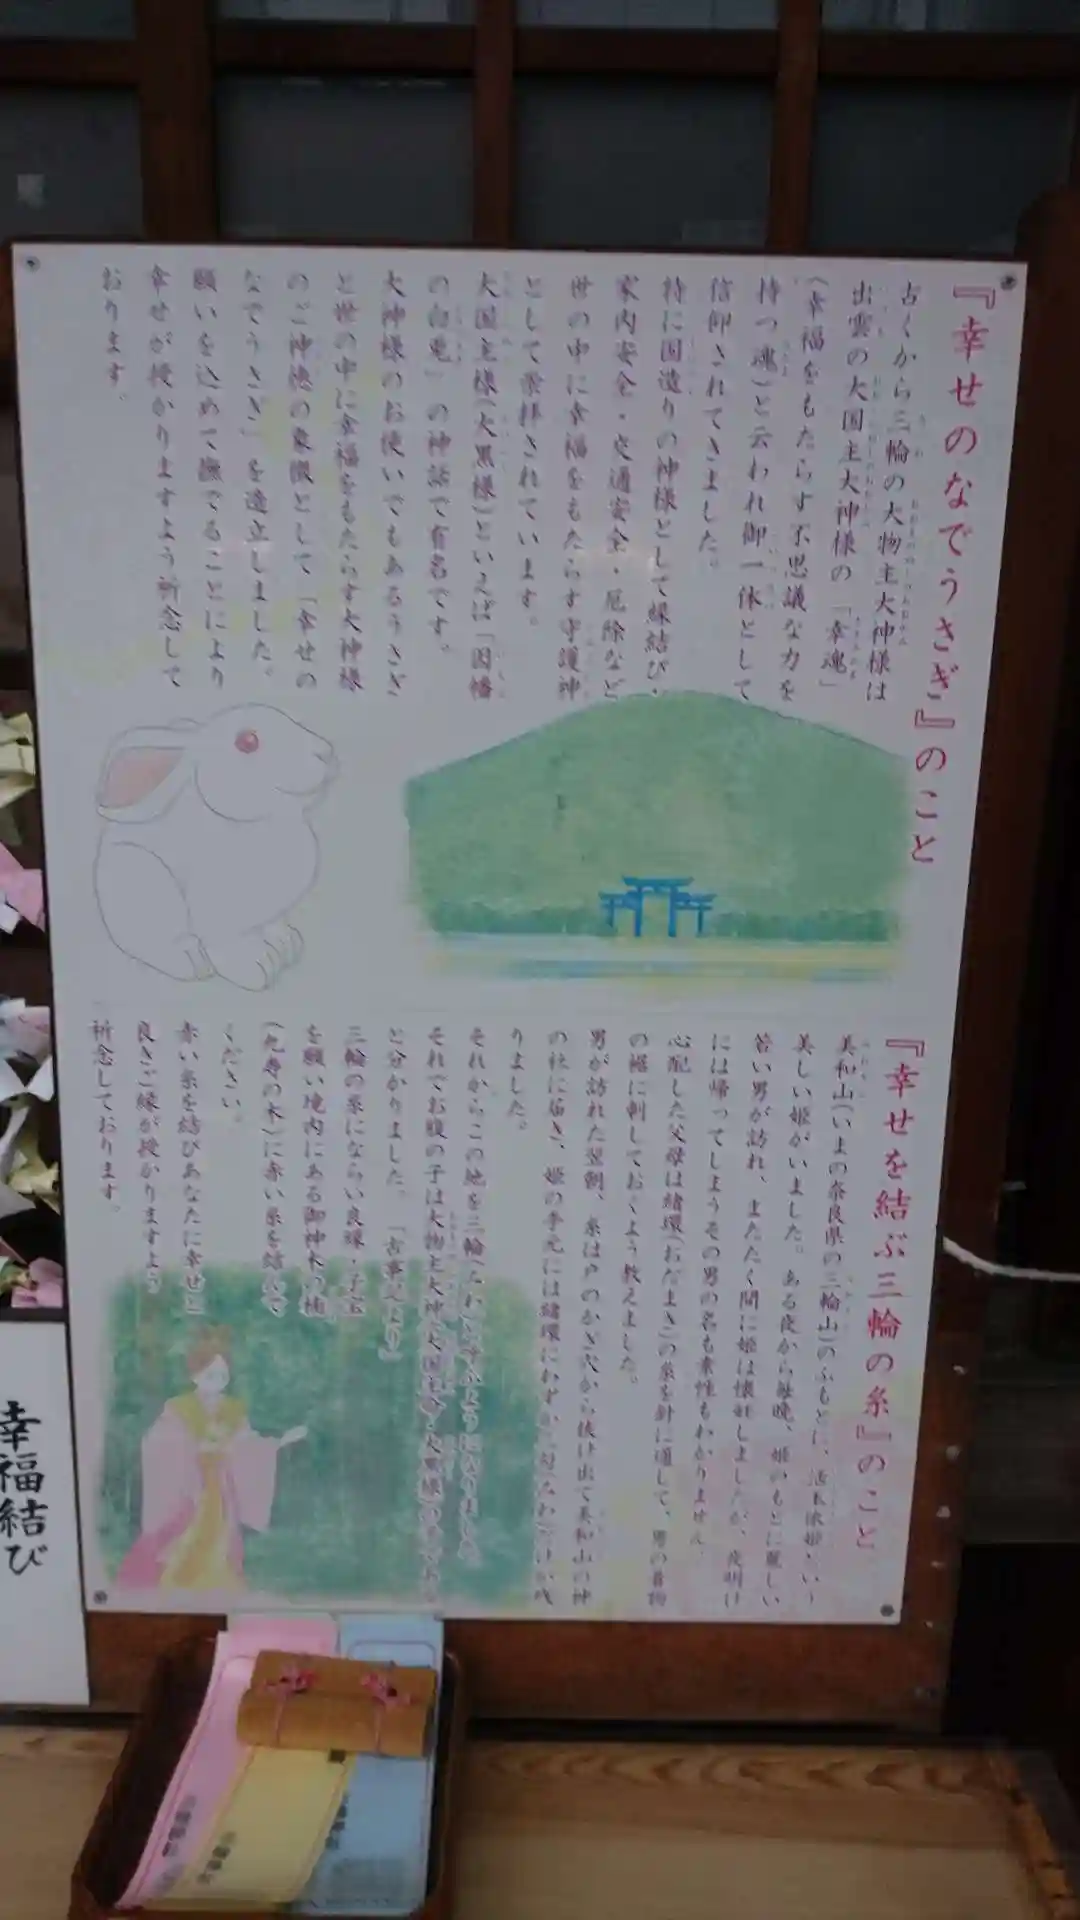 『幸せのなでうさぎ』のこと
古くから三輪の大物主大神様は
出雲の大国主大神様の「幸魂」
(幸福をもたらす不思議な力を
持つ魂)と云われ御一体として
信仰されてきました。
特に国造りの神様として縁結び・
家内安全・交通安全・厄除など
世の中に幸福をもたらす守護神
として崇拝されています。
大国主様(大黒様)といえば「因幡
の白兎」の神話で有名です。
大神様のお使いでもあるうさぎ
と世の中に幸福をもたらす大神様
のご神徳の象徴として「幸せの
なでうさぎ」を造立しました。
願いを込めて撫でることにより
幸せが授かりますよう祈念して
おります。
『幸せを結ぶ三輪の糸』のこと
美和山(いまの奈良県の三輪山)のふもとに、活玉依姫という
美しい姫がいました。ある夜から毎晩、姫のもとに麗しい
若い男が訪れ、またたく間に姫は懐妊しましたが、夜明け
には帰ってしまうその男の名も素性もわかりません。
心配した父母は緒環(おだまき)の糸を針に通して、男の着物
の裾に刺しておくよう教えました。
男が訪れた翌朝、糸は戸のかぎ穴から抜け出て美和山の神
の社に届き、姫の手元には緒環にわずか三勾(みわ)だけが残
りました。
それからこの地を三輪(みわ)と呼ぶようになりました。
それでお腹の子は大物主大神(大国主命・大黒様)の子である
と分かりました。「古事記より」
三輪の糸にならい良縁・子宝
を願い境内にある御神木の楠
の木)に赤い糸を結んで
ください。
赤い糸を結びあなたに幸せと
良きご縁が授かりますよう
祈念しております。
幸福結び